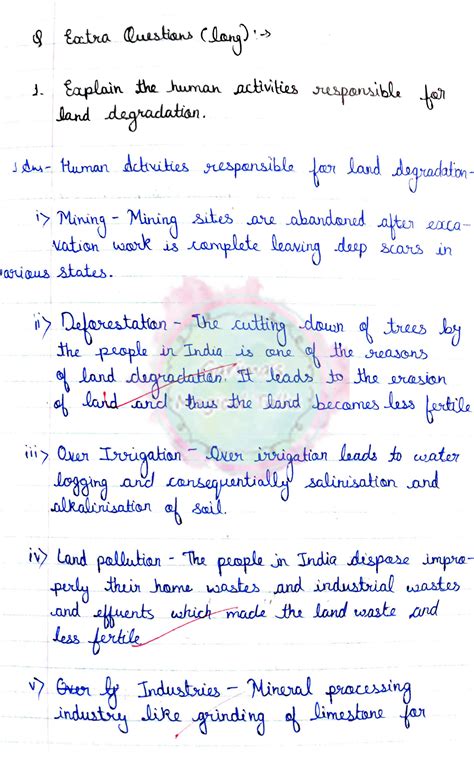 Q Extra Questions (long) :→
1. Explain the human activities responsible for
land degradation.
1 Ans- Human Activities responsible for land degradation-
i> Mining - Mining sites are abandoned after exca-
vation work is complete leaving deep scars in
various states.
ii> Deforestation - The cutting down of trees by
the people in India is one of the reasons
of land degradation. It leads to the erosion
of land and thus the land becomes less fertile
iii> Over Irrigation - Over irrigation leads to water
logging and consequentially salinisation and
alkalinisation of soil.
iv> Land pollution - The people in India dispose impro-
perly their home wastes and industrial wastes
and effuents which made the land waste and
less fertile
v> Industries - Mineral processing
industry like grinding of limestone for